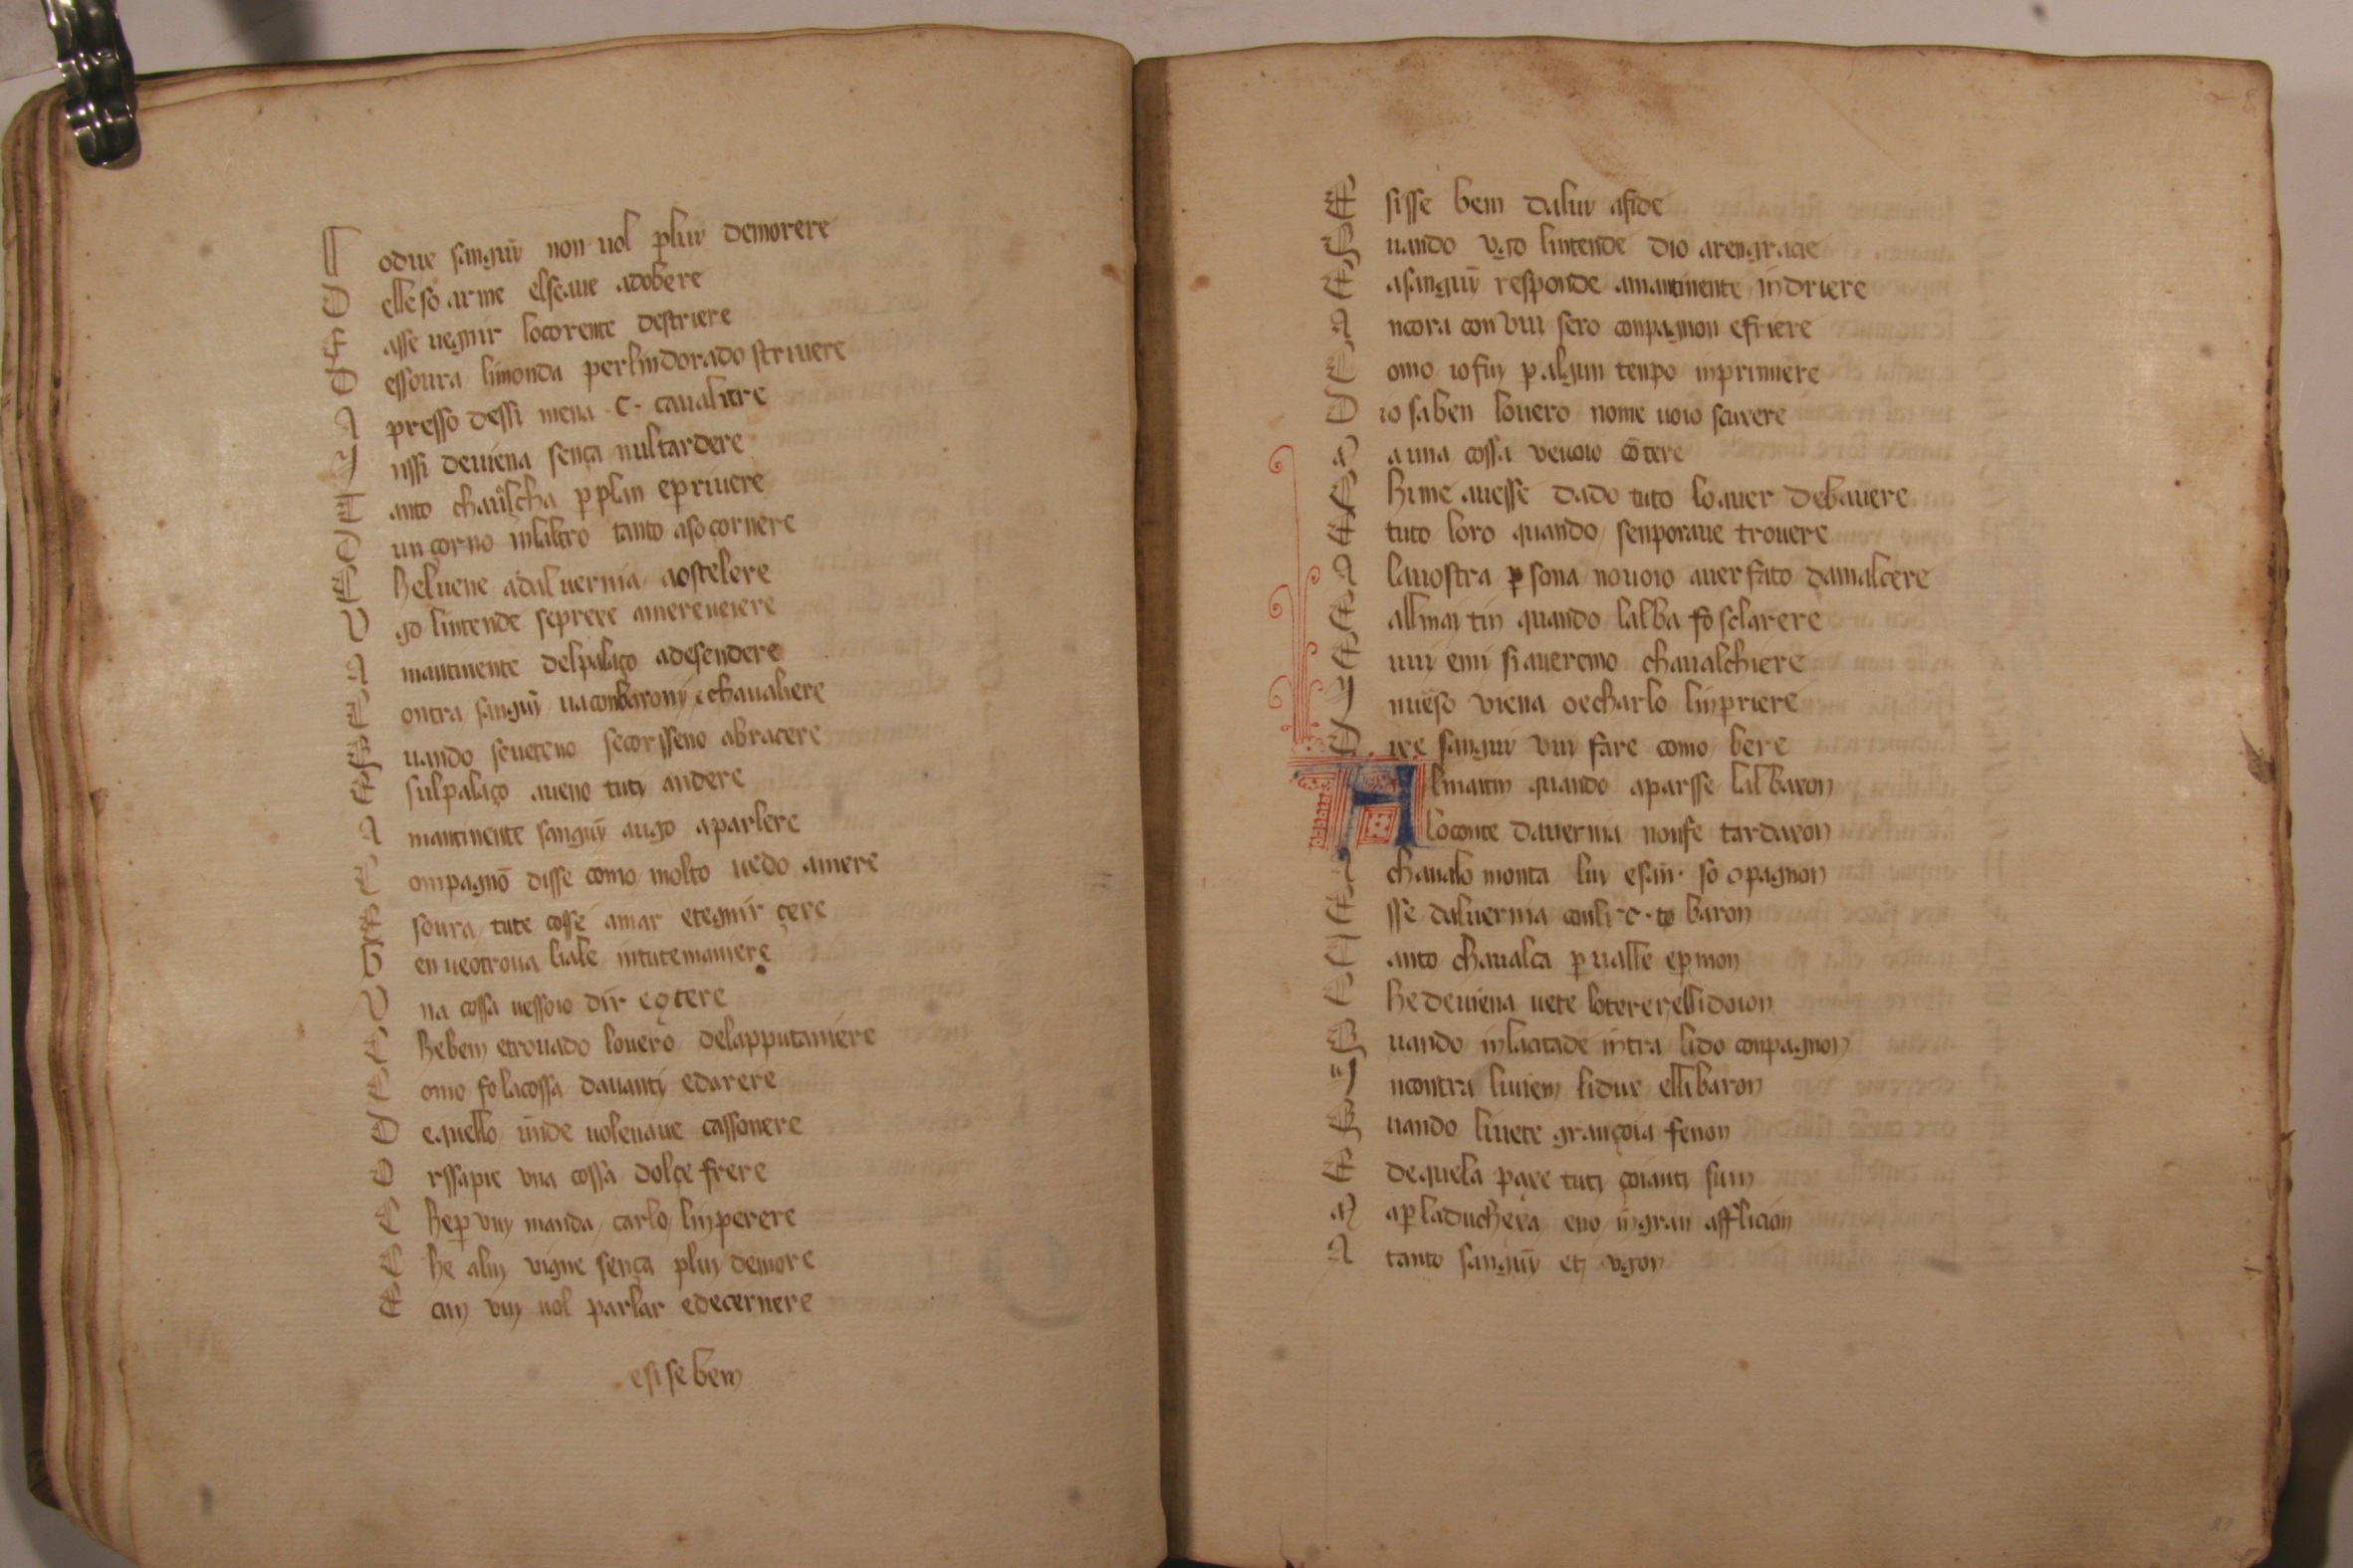 L odue sanguȳ non uol p̱luy demorere
D elle so arme elseaue adobere
F asse uegnir locorente destriere
D essoura limonda perlindorado striuere
A presso dessi mena ·C· caualitre
Y nssi deuiena sença nultardere
T anto chaualcha p̱ plan ep̱ riuere
D un çorno inlaltro tanto asocornere
C heluene adaluernia aostelere
V go lintende seprexe amereueiere
A mantinente delpalaço adesendere
C ontra sanguȳ ua conbarony e chaualiere
Q uando seueteno secorsseno abracere
E sulpalaço aueno tuty andere
A mantinente sanguȳ augo aparlere
C ompagnō disse como molto uedo amere
E soura tute cosse amar etegnir çere
B en ueotroua liale intutemaniere
V na cossa uessoio dir eçtere
C hebem etrouado louero delapputaniere
C omo fo lacossa dauanty edarere
D equello unde uoleuaue cassonere
O rssapie vna cossa dolçe frere
C hep̱ vuy manda carlo linperere
C he aluy vigne sença pluy demore
E cuy vuy uol parlar edecernere
esisebem
E sisse bem daluy afide
Q uando vgo lintende dio arengracie
E asanguȳ responde amantinente indriere
A ncora con vuy sero conpagnon efriere
C omo io fuy p̱ algun tenpo inprimiere
D io saben louero nome uoio scuxere
M a una cossa veuoio cōtere
C hime auesse dado tuto loauer debauere
E tuto loro quando senporaue trouere
A lauostra p̱sona nouoio auer fato damalcere
E allmaytin quando lalba fo sclarere
E uuy emi si aueremo chaualchiere
Y nuerso viena oecharlo linpriere
D ixe sanguȳ vuy fare como bere
A lmaitin quando aparsse lalbaxon
loconte dauernia nonfe tardaxon
A chaualo monta luy esan· so opagnon
E sse daluernia conli ·C·to baron
T anto chaualca p̱ ualle ep̱ mon
C hedeuiena uete loterere elli doion
Q uando inlacitade intra lido conpagnon
Y ncontra liuiem lidue elli baron
Q uando liuete grançoia fenon
E dequela paxe tuty çoianty sum
M a p̱ laduchexa eno ingran afflicion
A tanto sanguȳ ety vgon